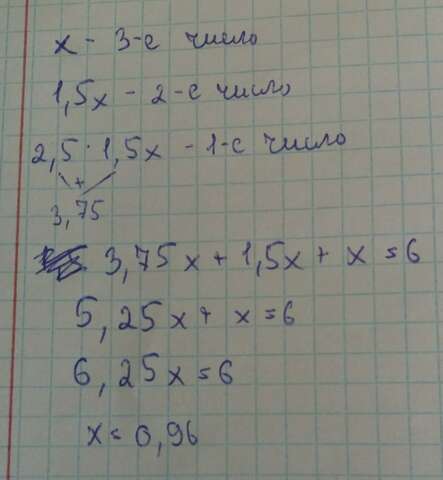 x - 3-е число
1,5x - 2-е число
2,5 · 1,5x - 1-е число
+
3,75
3,75x + 1,5x + x = 6
5,25x + x = 6
6,25x = 6
x = 0,96